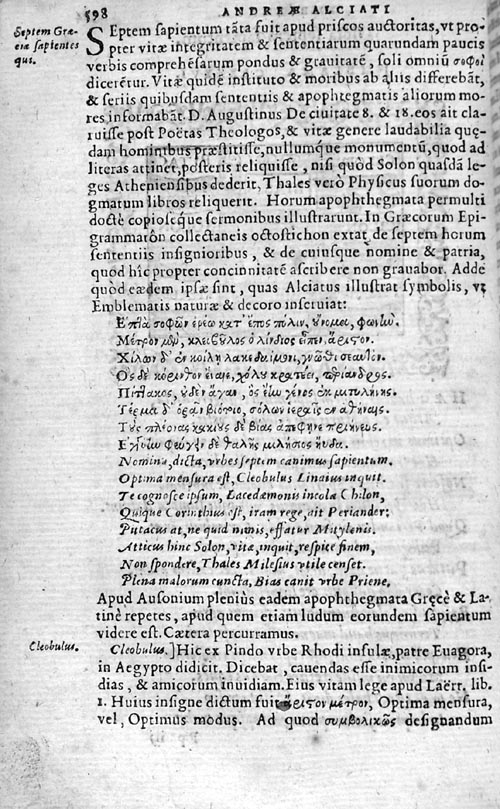 598 ANDREÆ ALCIATI
Septem Græ-
ciæ sapientes
qui.
SEptem sapientum tãta fuit apud priscos auctoritas, vt pro-
pter vitæ integritatem & sententiarum quarundam paucis
verbis comprehẽsarum pondus & grauitatẽ, soli omniũ σοφοὶ
dicerẽtur. Vitæ quidẽ instituto & moribus ab aliis differebãt,
& seriis quibusdam sententiis & apophtegmatis aliorum mo-
res informabãt. D. Augustinus De ciuitate 8. & 18. eos ait cla-
ruisse post Poëtas Theologos, & vitæ genere laudabilia quę-
dam hominibus præstitisse, nullumque monumentũ, quod ad
literas attinet, posteris reliquisse, nisi quòd Solon quasdã le-
ges Atheniensibus dederit, Thales verò Physicus suorum do-
gmatum libros reliquerit. Horum apophthegmata permulti
doctè copioseque sermonibus illustrarunt. In Græcorum Epi-
grammatôn collectaneis octostichon extat de septem horum
sententiis insignioribus, & de cuiusque nomine & patria,
quòd hîc propter concinnitatẽ ascribere non grauabor. Adde
quòd eædem ipsæ sint, quas Alciatus illustrat symbolis, vt
Emblematis naturæ & decoro inseruiat:
Επτὰ σοφῶν ἐρέω κατ' ἔπος πόλιν, οὔνομα, φωνίω.
Μέτρον μὲν, κλειβουλος ὁ λίνδιος εἶπεν, ἄριστον.
Χίλων δ' ἐν κοίλῃ λακεδαίμονι, γνῶθι σεαυτόν.
Ος δὲ κόρινθον ἔναιε, χόλου κρατέειν, περίανδρος.
Πίττακος, οὐδὲν ἄγαν, ὃς ἔην γένος ἐκ μιτυλήνης.
Τέρμα δ' ὁρᾶν βιότοιο, σόλων ἱεραῖς ἐν ἀθήναις.
Τοὺς πλέονας κακίους δὲ βίας ἀπέφηνε πριηνεύς.
Εγγύην φεύγειν δὲ θαλῆς μιλήσιος ηὔδα.
Nomina, dicta, vrbes septem canimus sapientum.
Optima mensura est, Cleobulus Lindius inquit.
Te cognosce ipsum, Lacedæmonis incola Chilon,
Quique Corinthius est, iram rege, ait Periander:
Pittacus at, ne quid nimis, effatur Mitylenis.
Atticus hinc Solon, vitæ, inquit, respice finem,
Non spondere, Thales Milesius vtile censet.
Plena malorum cuncta, Bias canit vrbe Priene,
Apud Ausonium pleniùs eadem apophthegmata Gręcè & La-
tinè repetes, apud quem etiam ludum eorundem sapientum
videre est. Cætera percurramus.
Cleobulus.
Cleobulus.] Hic ex Pindo vrbe Rhodi insulæ, patre Euagora,
in Aegypto didicit. Dicebat, cauendas esse inimicorum insi-
dias, & amicorum inuidiam. Eius vitam lege apud Laërt. lib.
1. Huius insigne dictum fuit ἄριστον μέτρον, Optima mensura,
vel, Optimus modus. Ad quod συμβολικῶς designandum